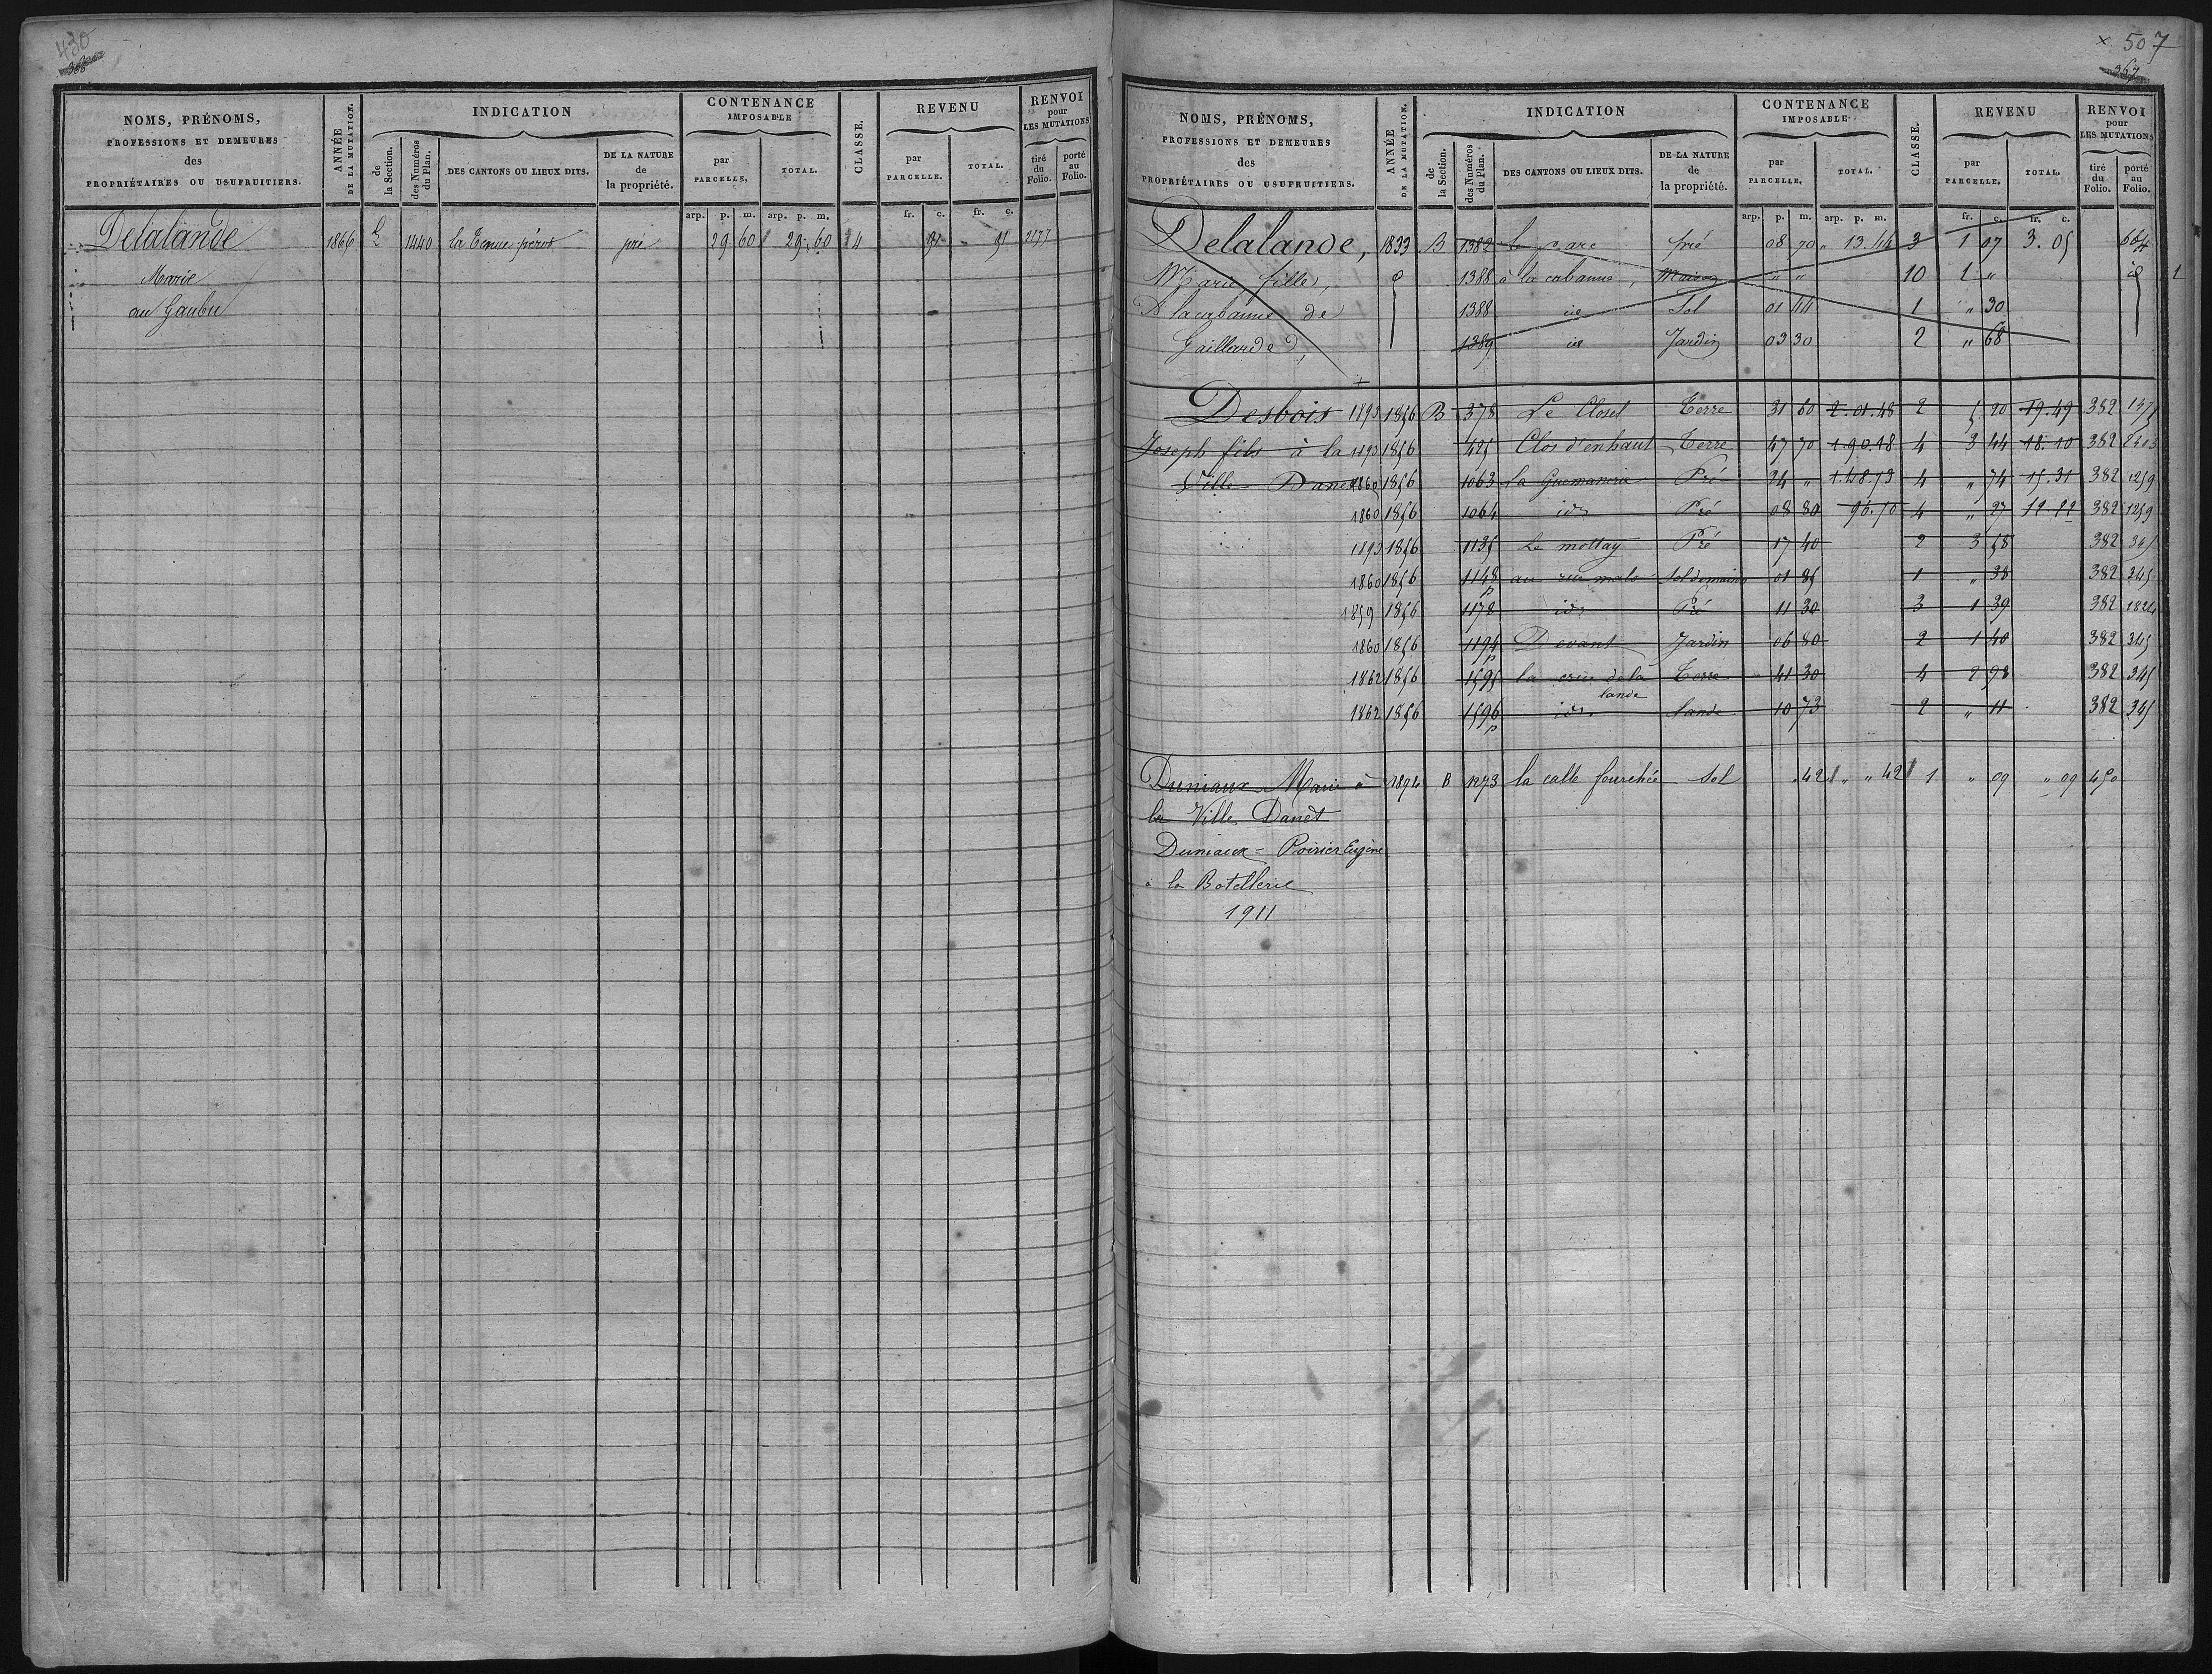 430
NOMS, PRÉNOMS,
PROFESSIONS ET DEMEURES
des
PROPRIÉTAIRES OU USUFRUITIERS.
ANNÉE
DE LA MUTATION.
INDICATION
de
la Section.
des Numéros
du Plan.
DES CANTONS OU LIEUX DITS.
DE LA NATURE
de
la propriété.
CONTENANCE
IMPOSABLE
par
PARCELLE.
TOTAL.
CLASSE.
REVENU
par
PARCELLE.
TOTAL.
RENVOI
pour
LES MUTATIONS
tiré
du
Folio.
porté
au
Folio.
arp. p. m. arp. p. m. fr. c. fr. c.
Delalande 1866 1440 la Tenue pré 29 60 29. 60 4 91 91 2177
Marie
au Gaubu
507
367
NOMS, PRÉNOMS,
PROFESSIONS ET DEMEURES
des
PROPRIÉTAIRES OU USUFRUITIERS.
ANNÉE
DE LA MUTATION.
INDICATION
de
la Section.
des Numéros
du Plan.
DES CANTONS OU LIEUX DITS.
DE LA NATURE
de
la propriété.
CONTENANCE
IMPOSABLE
par
PARCELLE.
TOTAL.
CLASSE.
REVENU
par
PARCELLE.
TOTAL.
RENVOI
pour
LES MUTATIONS
tiré
du
Folio.
porté
au
Folio.
arp. p. m. arp. p. m. fr. c. fr. c.
Delalande, 1833 B 1382 le parc pré 08 70 " 13.44 3 1 07 3.05 664
Marie, fille, 1388 à la cabanne, Maison " " 10 1 " id 1
A la cabanne de 1388 id Sol 01 44 1 " 30
Gaillarded, 1389 id Jardin 03 30 2 " 68
Desbois 1893 1856 B 378 Le Closel Terre 31 60 2.01.48 2 5 20 19.49 382
Joseph fils à la 1893 1856 425 Clos d'enhaut Terre 47 70 1.90.18 4 3 44 18.10 382
Ville Danet 1860 1856 1063 Pré 24 " 1.48.73 4 " 74 15.31 382 1259
1860 1856 1064 id Pré 08 80 4 " 27 12.22 382 1259
1893 1856 1135 Le mottay Pré 17 40 2 3 58 382 345
1860 1856 1148 p 01 85 1 " 38 382 345
1859 1856 1178 id Pré 11 30 3 1 39 382 1824
1860 1856 1194 p Devant Jardin 06 80 2 1 40 382 345
1862 1856 1595 la de la lande Terre 41 30 4 2 98 382 345
1862 1856 1596 p id. lande 10 73 2 " 11 382 345
Duniaux Marie à 1894 B 1273 la calle fourchée Sol 42 " " 42 1 " 09 " 09 450
la Ville Danet
Duniaux = Poirier Eugène
à la Botellerie
1911